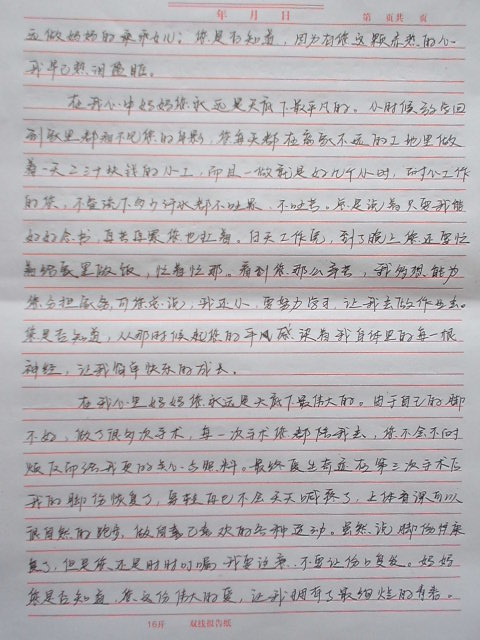 年 月 日 第 页共 页
远做妈妈的乖乖女儿；您是否知道，因为有您这颗赤热的心
我早已热泪盈眶。
在我心中妈妈您永远是天底下最平凡的。小时候放学回
到家里都看不见您的身影，您每天都在离家不远的工地里做
着一天二三十块钱的小工，而且一做就是好几个小时，对小工作
的您，不管流下多少汗水都不吐累、不吐苦。总是说着只要我能
好好念书，再苦再累您也扛着。白天工作完，到了晚上您还要忙
着给家里做饭，忙着忙那。看到您那么辛苦，我多想能为
您分担家务，可您总说，我还小，要努力学习，让我去做作业去。
您是否知道，从那时候起您的平凡感染着我身体里的每一根
神经，让我简单快乐的成长。
在我心里妈妈您永远是天底下最伟大的。由于自己的脚
不好，做了很多次手术，每一次手术您都陪我去，您不会不
烦反而给我更的关心与照料。最终发生奇迹在第三次手术后
我的脚伤恢复了，再也不会天天喊疼了，上体育课可以
很自然的跑步，做自己喜欢的各种运动。虽然说脚伤恢
复了，但是您还是时时叮嘱我要注意，不要让伤口复发。妈妈
您是否知道，您这份伟大的爱，让我拥有了最绚烂的青春。
16开 双线报告纸